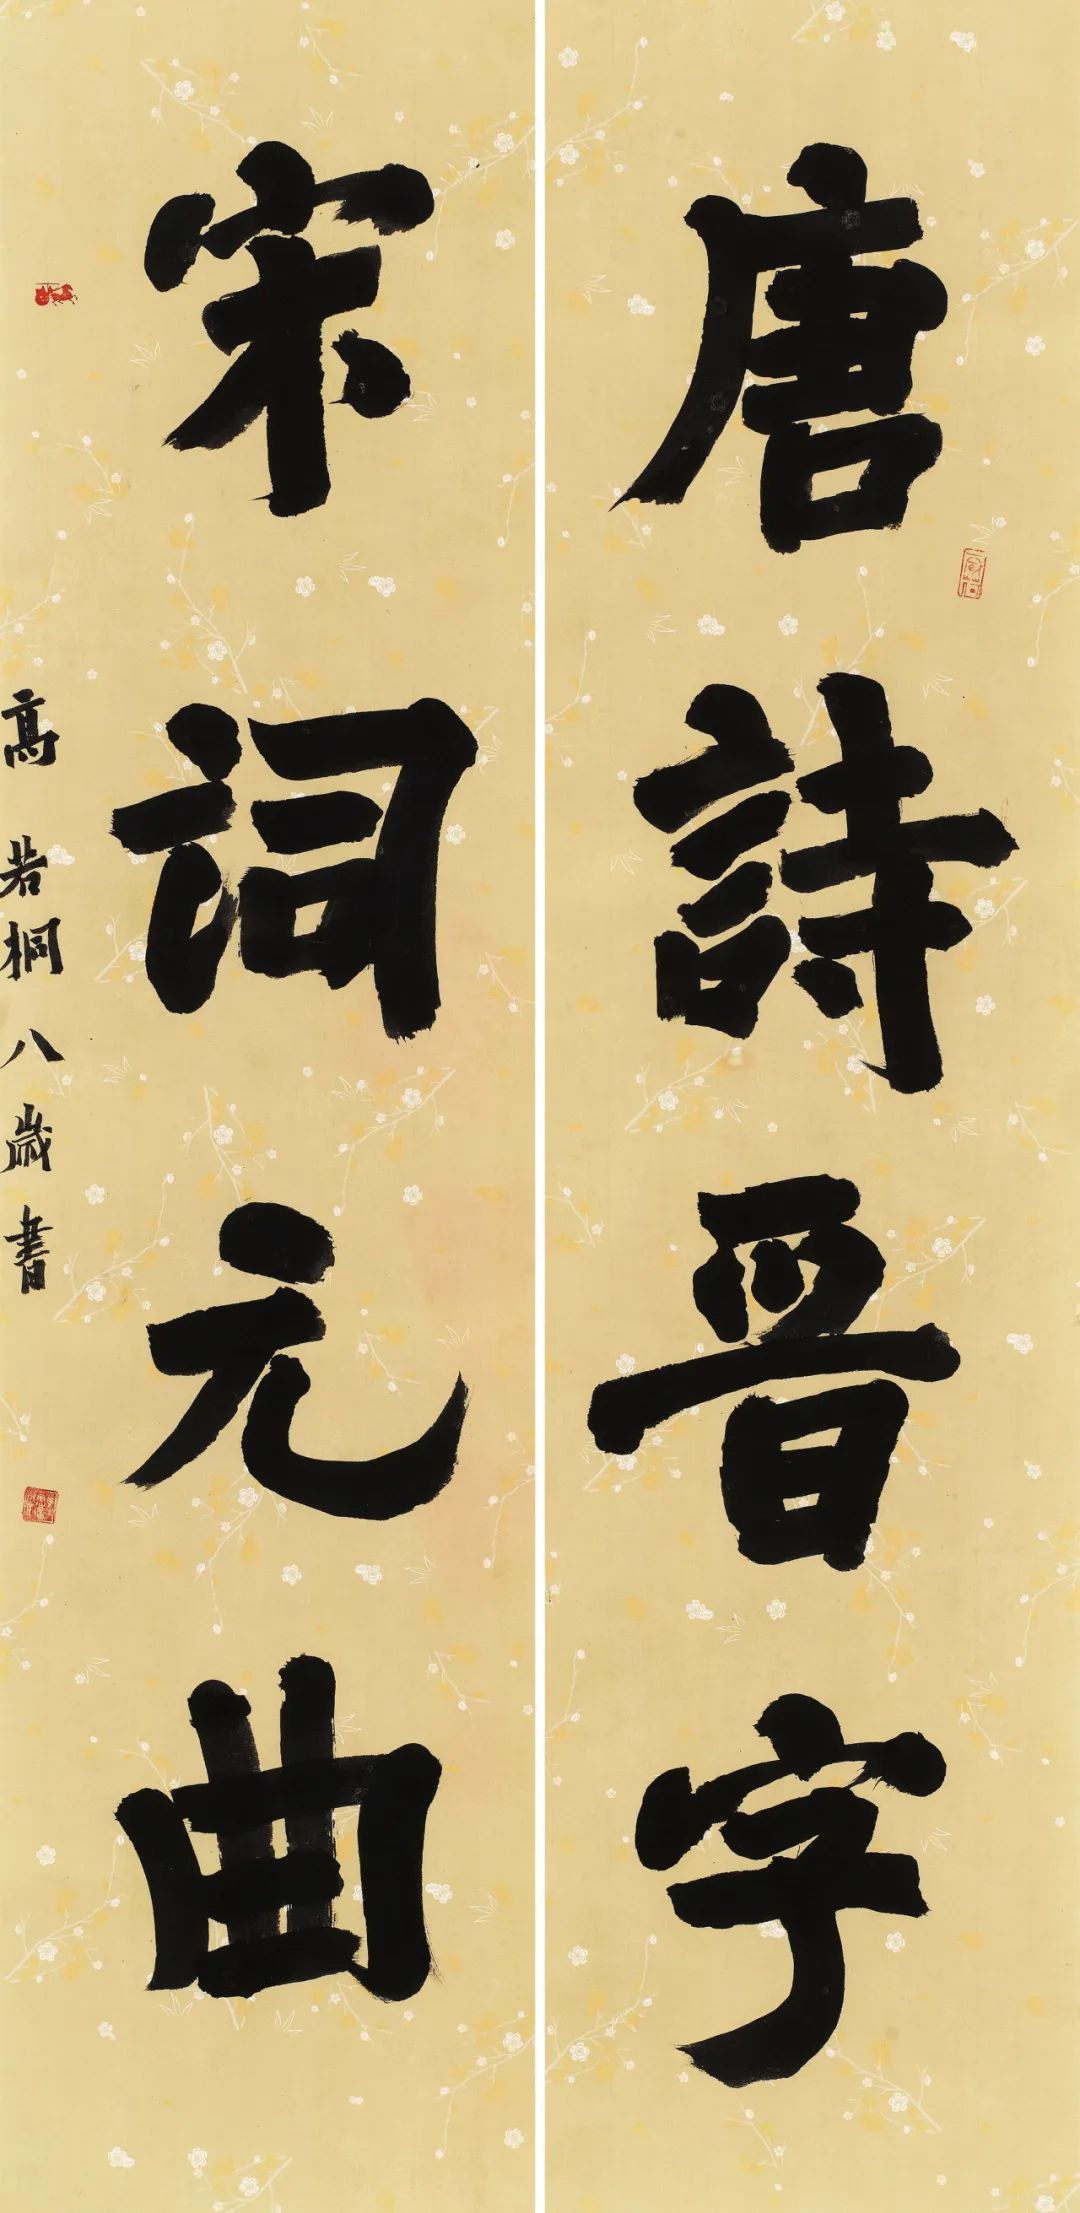 唐詩晉字
宋詞元曲
高若桐八歲書